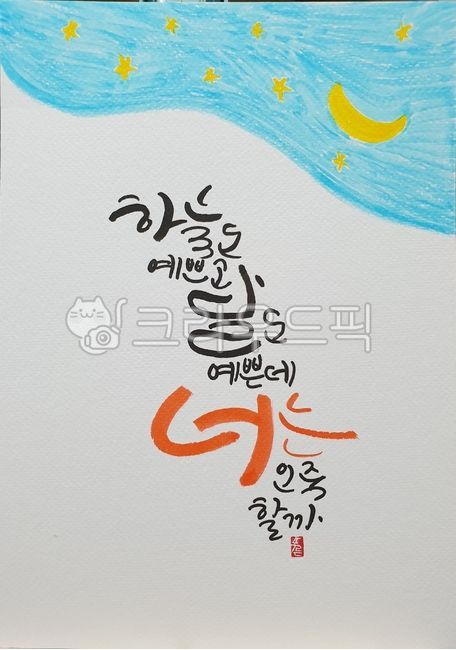 하늘도
예쁘고
달도
크라우드픽
예쁜데
너는
인죽
할까.